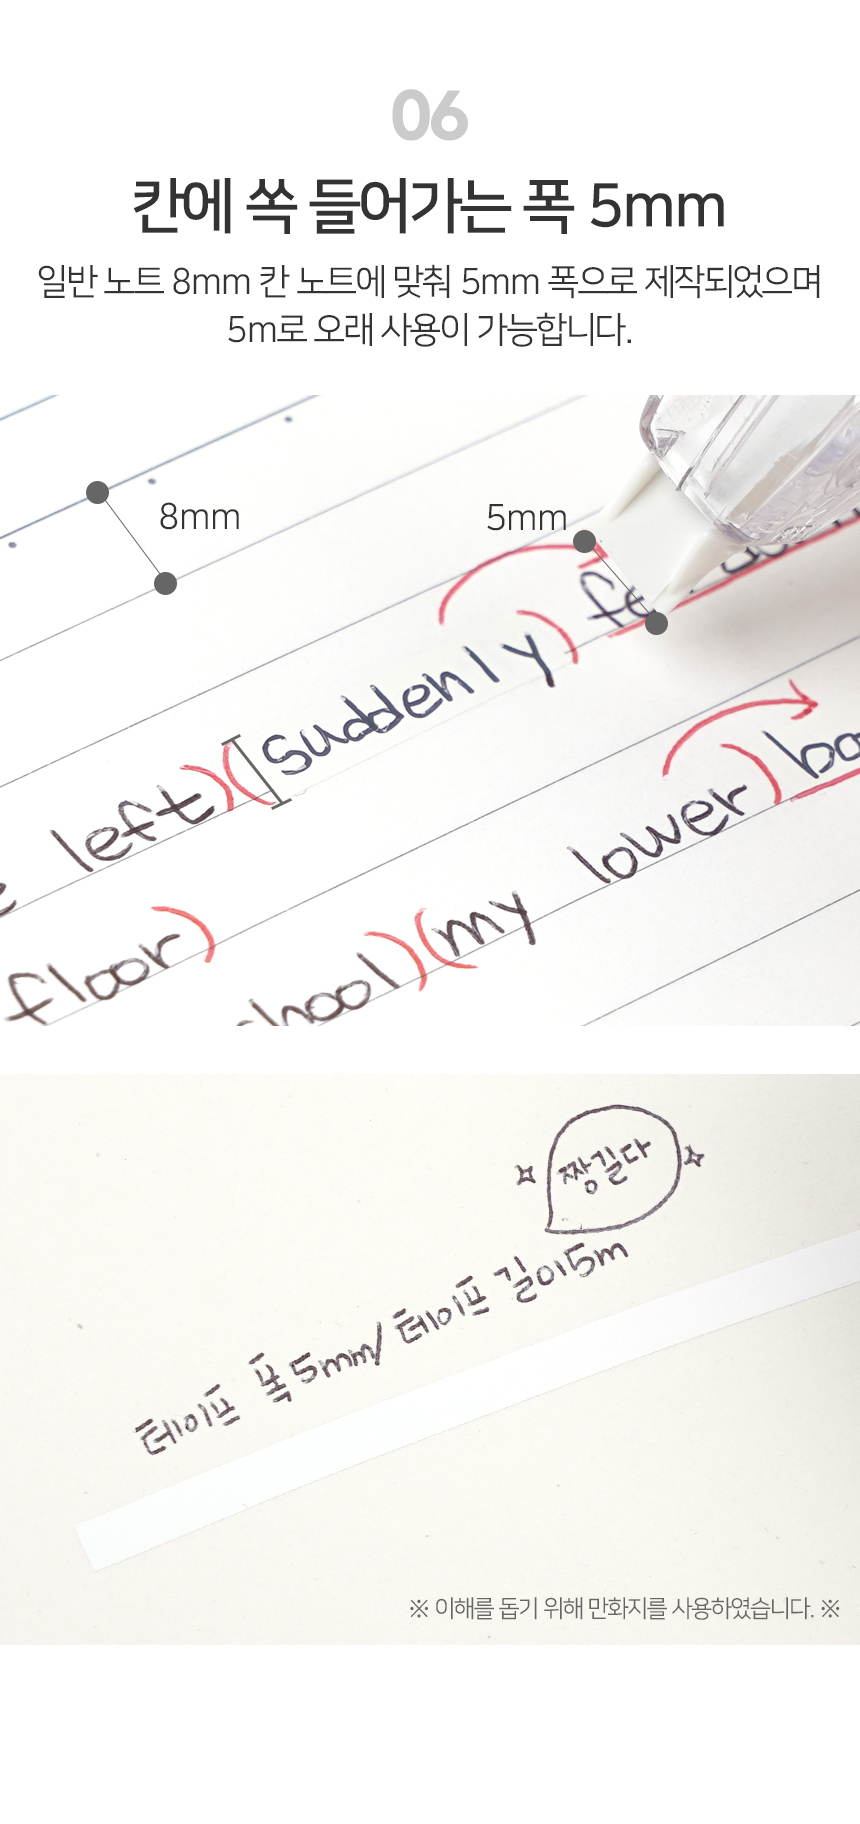 06
칸에 쏙 들어가는 폭 5mm
일반 노트 8mm 칸 노트에 맞춰 5mm 폭으로 제작되었으며
5m로 오래 사용이 가능합니다.
8mm
5mm
left)(suddenly)
my lower)
floor)
hool)(my
짱길다
테이프 폭 5mm/ 테이프 길이 5m
※ 이해를 돕기 위해 만화지를 사용하였습니다. ※